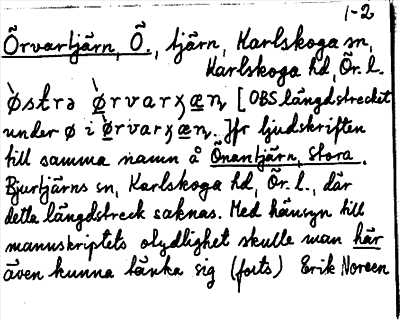 1-2
Örvartjärn, Ö., tjärn, Karlskoga sn,
Karlskoga hd, Ör. l.
[OBS längdstrecket
under ø i
Jfr ljudskriften
till samma namn å Önantjärn, Stora.
Bjurtjärns sn, Karlskoga hd, Ör. l., där
detta längdstreck saknas. Med hänsyn till
manuskriptets otydlighet skulle man här
även kunna tänka sig (forts) Erik Noreen